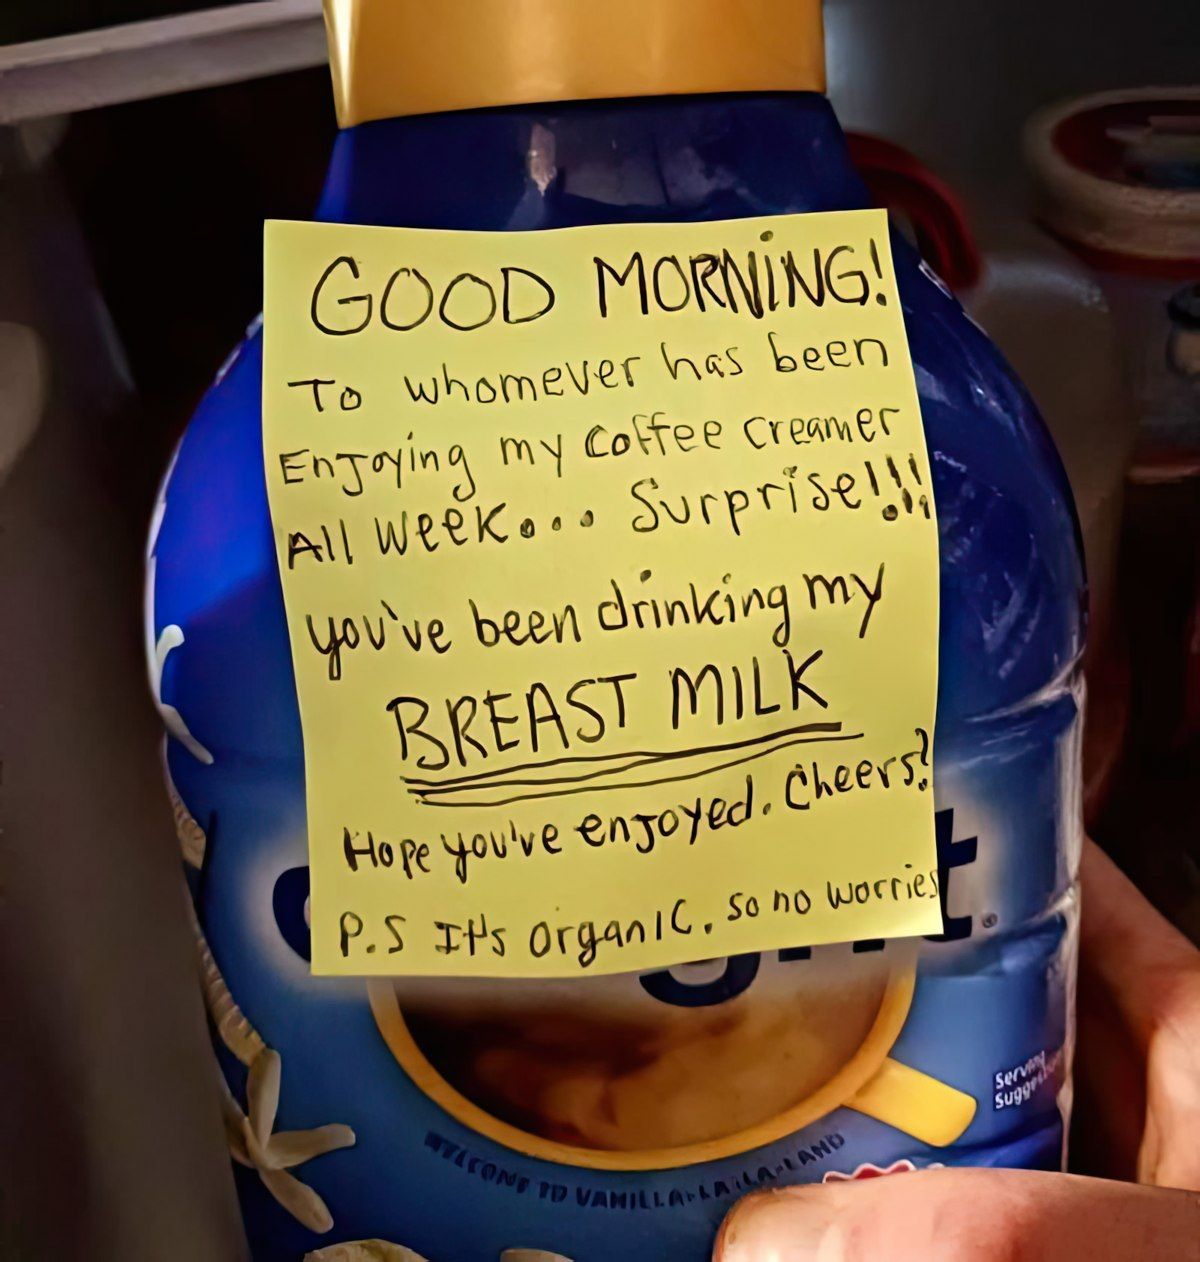 GOOD MORNING!
To whomever has been
Enjoying my coffee creamer
All week... Surprise!!!
you've been drinking my
BREAST MILK
Hope you've enjoyed. Cheers?
P.S It's organic. so no worries
t.
Serving
WELCOME TO VANILLA-LA-LA-LAND